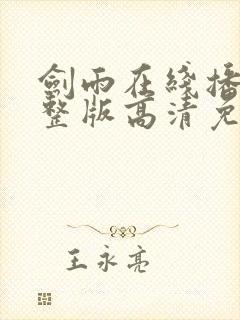 劍雨在綫播
整版高清免
王永亮